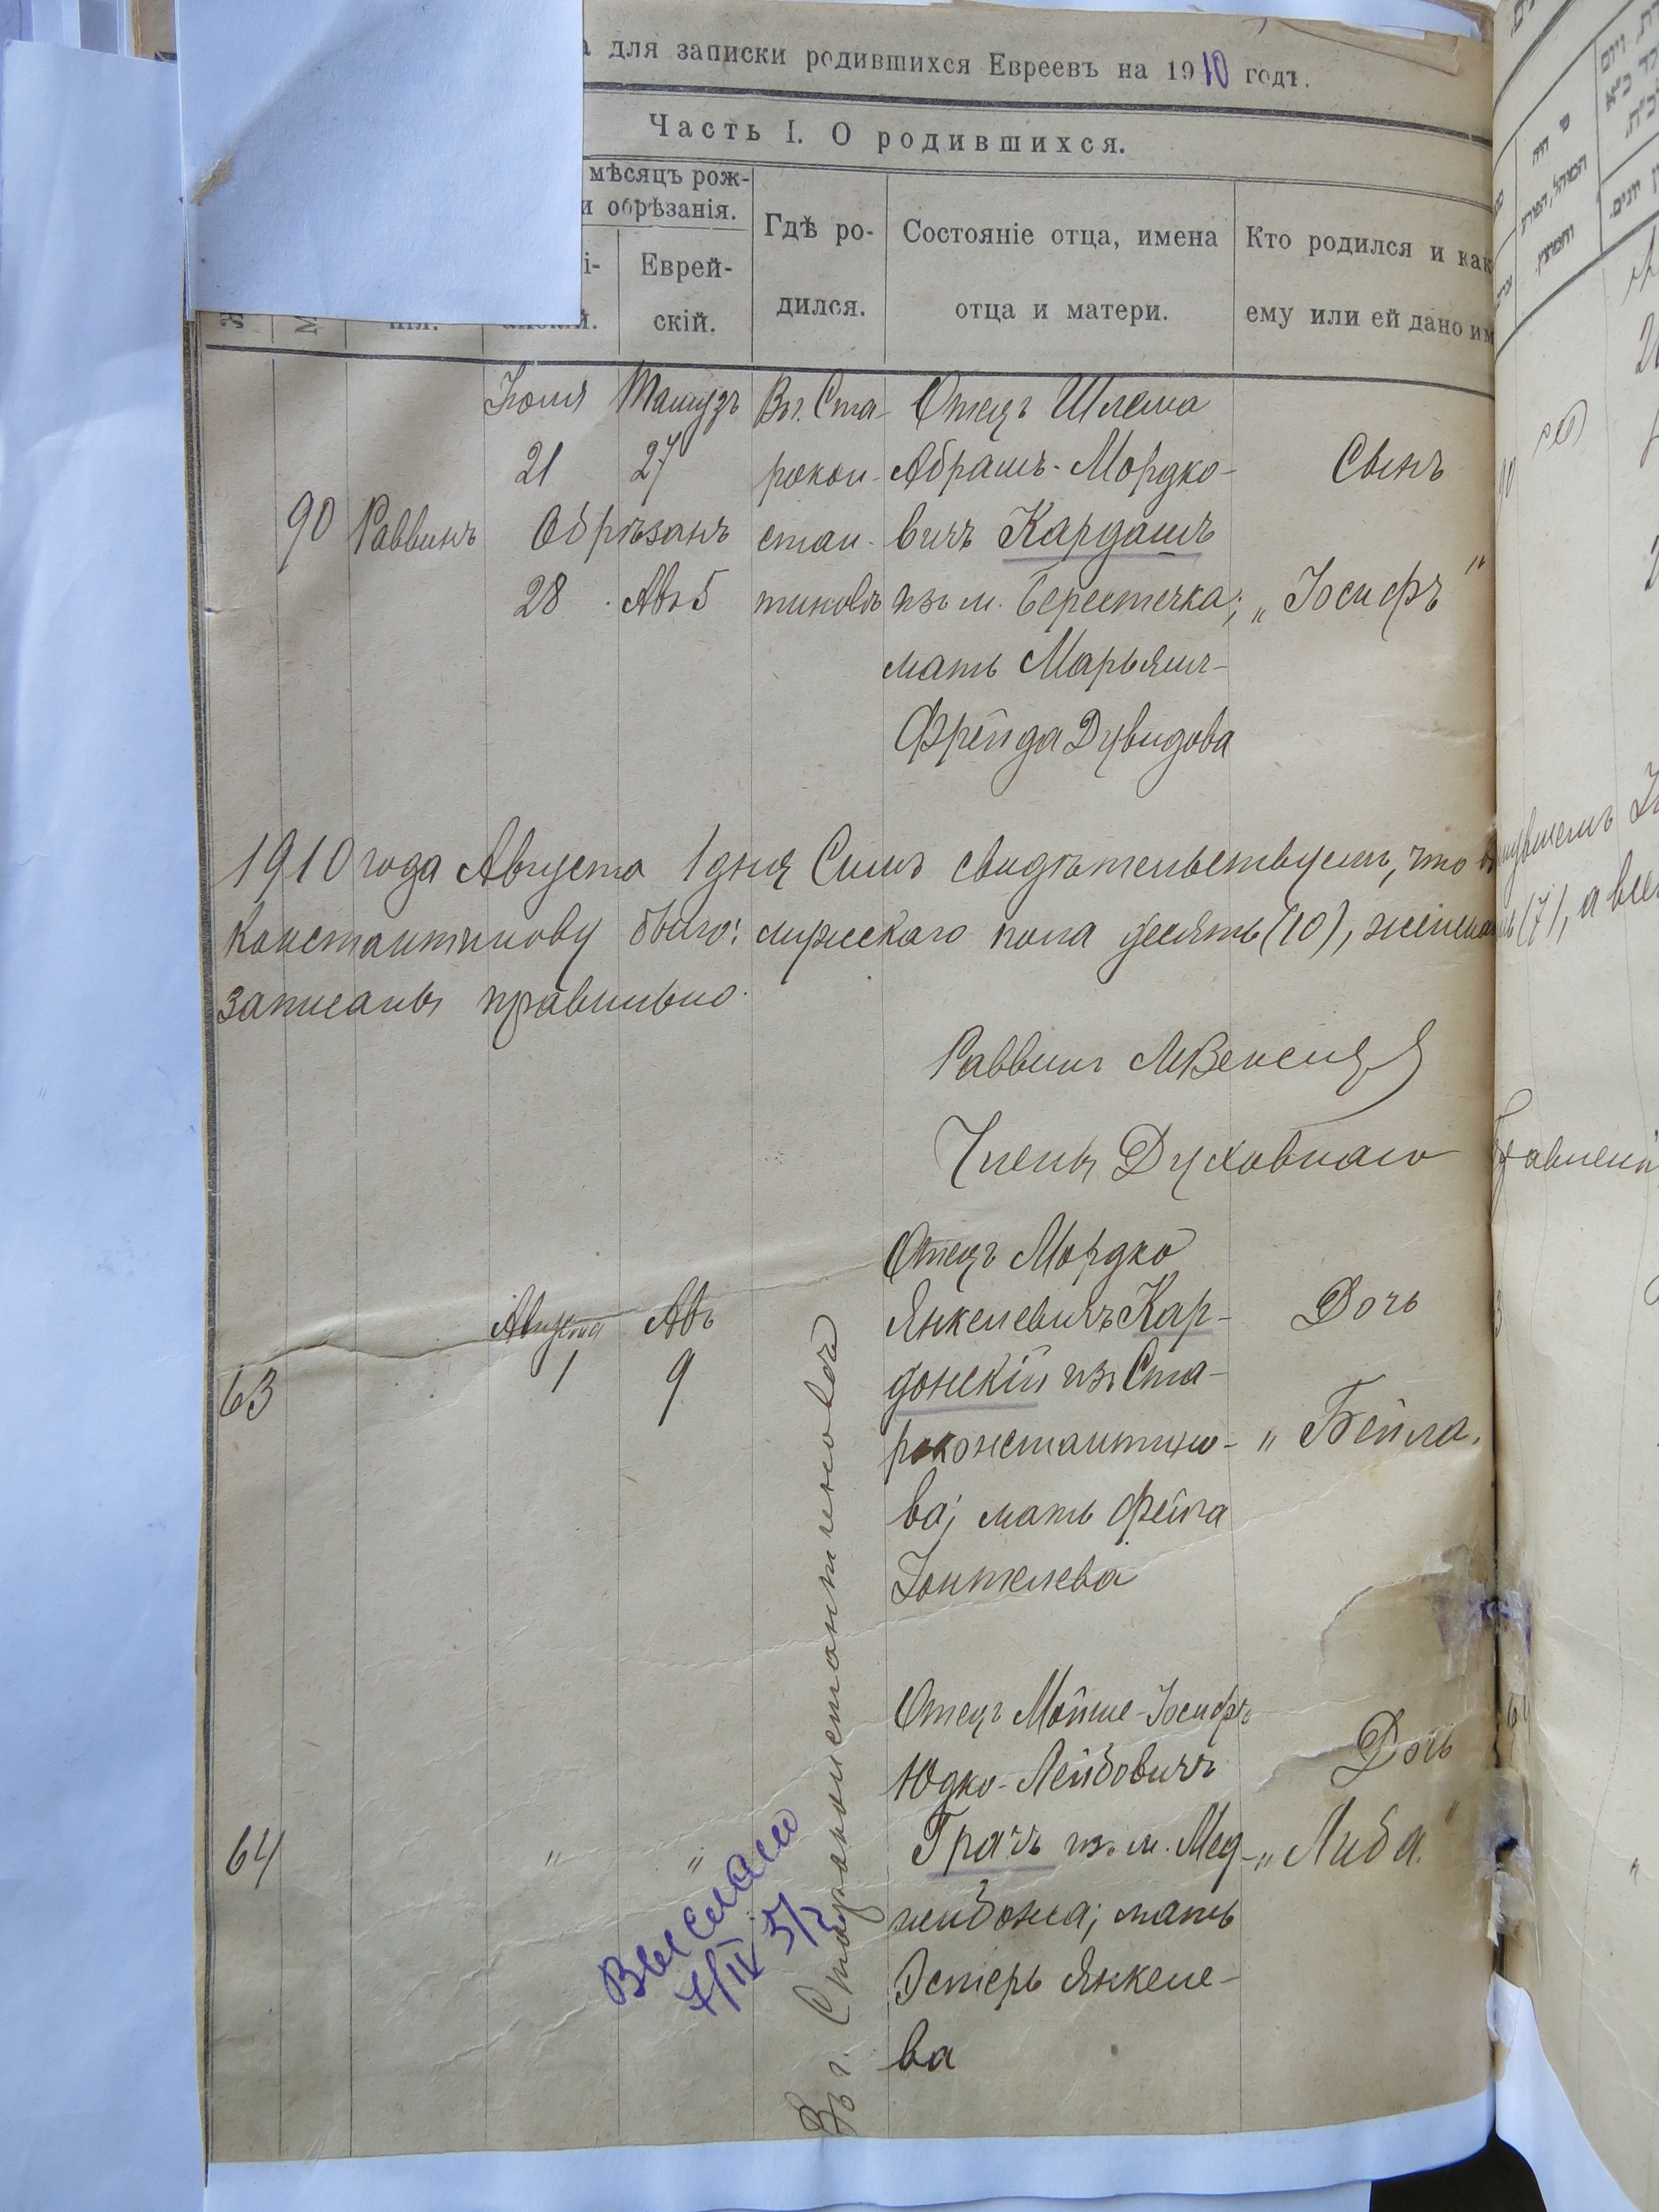 для записки родившихся Евреевъ на 1910 годъ.
Часть I. О родившихся.
мѣсяцъ рож-
и обрѣзанія.
Еврей-
скій.
Гдѣ ро-
дился.
Состояніе отца, имена
отца и матери.
Кто родился и как
ему или ей дано им
90
Раввинъ
Іюля
21
Тамузъ
27
Обрѣзанъ
28
Авъ 5
Въ г. Ста-
рокон-
стан-
тиновѣ
Отецъ Шлема
Абрамъ-Мордко-
вичъ Кардашъ
изъ м. Берестечка;
мать Марьям-
Фрейда Дувидова
Сынъ
„Іосифъ"
1910 года Августа 1 дня Симъ свидѣтельствуемъ, что в
Константинову было: мужескаго пола десять (10), женска (7), а всего
записаны правильно.
Раввинъ
Члены Духовнаго Правлени
63
Августа
1
Авъ
9
Въ г. Староконстантиновѣ
Отецъ Мордко
Янкелевичъ Кар-
донскій изъ Ста-
роконстантино-
ва; мать Фейга
Дочь
„Бейла.
64
"
"
Отецъ Мойше-Іосифъ
Юдко-Лейбовичъ
Грачъ изъ м. Мед-
жибожа; мать
Эстеръ Янкеле-
ва
Дочь
„Либа."
Выслано
7/IV